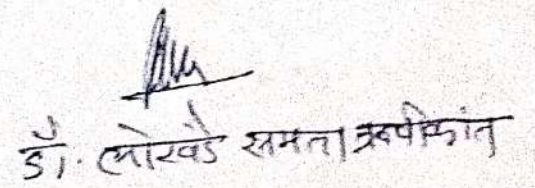 डॉ. लोखंडे समता ऋषीकांत